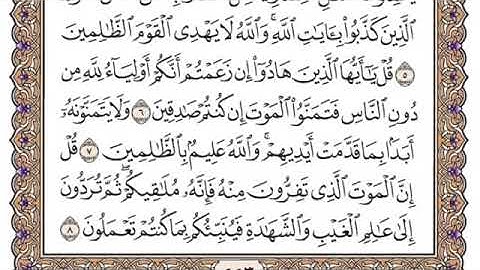 ٱلَّذِينَ كَذَّبُوا۟ بِـَٔايَـٰتِ ٱللَّهِ ۚ وَٱللَّهُ لَا يَهْدِى ٱلْقَوْمَ ٱلظَّـٰلِمِينَ
٥ قُلْ يَـٰٓأَيُّهَا ٱلَّذِينَ هَادُوٓا۟ إِن زَعَمْتُمْ أَنَّكُمْ أَوْلِيَآءُ لِلَّهِ مِن
دُونِ ٱلنَّاسِ فَتَمَنَّوُا۟ ٱلْمَوْتَ إِن كُنتُمْ صَـٰدِقِينَ ٦ وَلَا يَتَمَنَّوْنَهُۥٓ
أَبَدًۢا بِمَا قَدَّمَتْ أَيْدِيهِمْ ۚ وَٱللَّهُ عَلِيمٌۢ بِٱلظَّـٰلِمِينَ ٧ قُلْ
إِنَّ ٱلْمَوْتَ ٱلَّذِى تَفِرُّونَ مِنْهُ فَإِنَّهُۥ مُلَـٰقِيكُمْ ۖ ثُمَّ تُرَدُّونَ
إِلَىٰ عَـٰلِمِ ٱلْغَيْبِ وَٱلشَّهَـٰدَةِ فَيُنَبِّئُكُم بِمَا كُنتُمْ تَعْمَلُونَ ٨